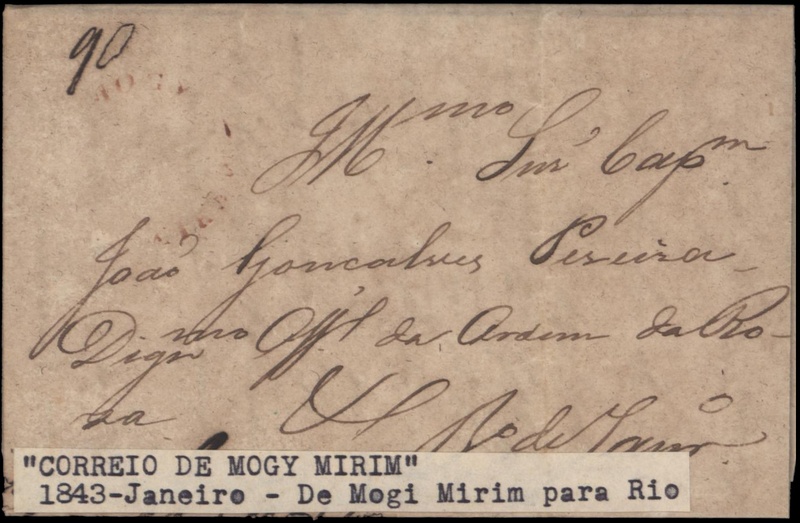 90
MOGY
Illmo. Snr. Capm.
João Gonçalves Pereira
Dignmo Offl. da Ordem da Ro-
sa
Ro de Janro
"CORREIO DE MOGY MIRIM"
1843-Janeiro - De Mogi Mirim para Rio